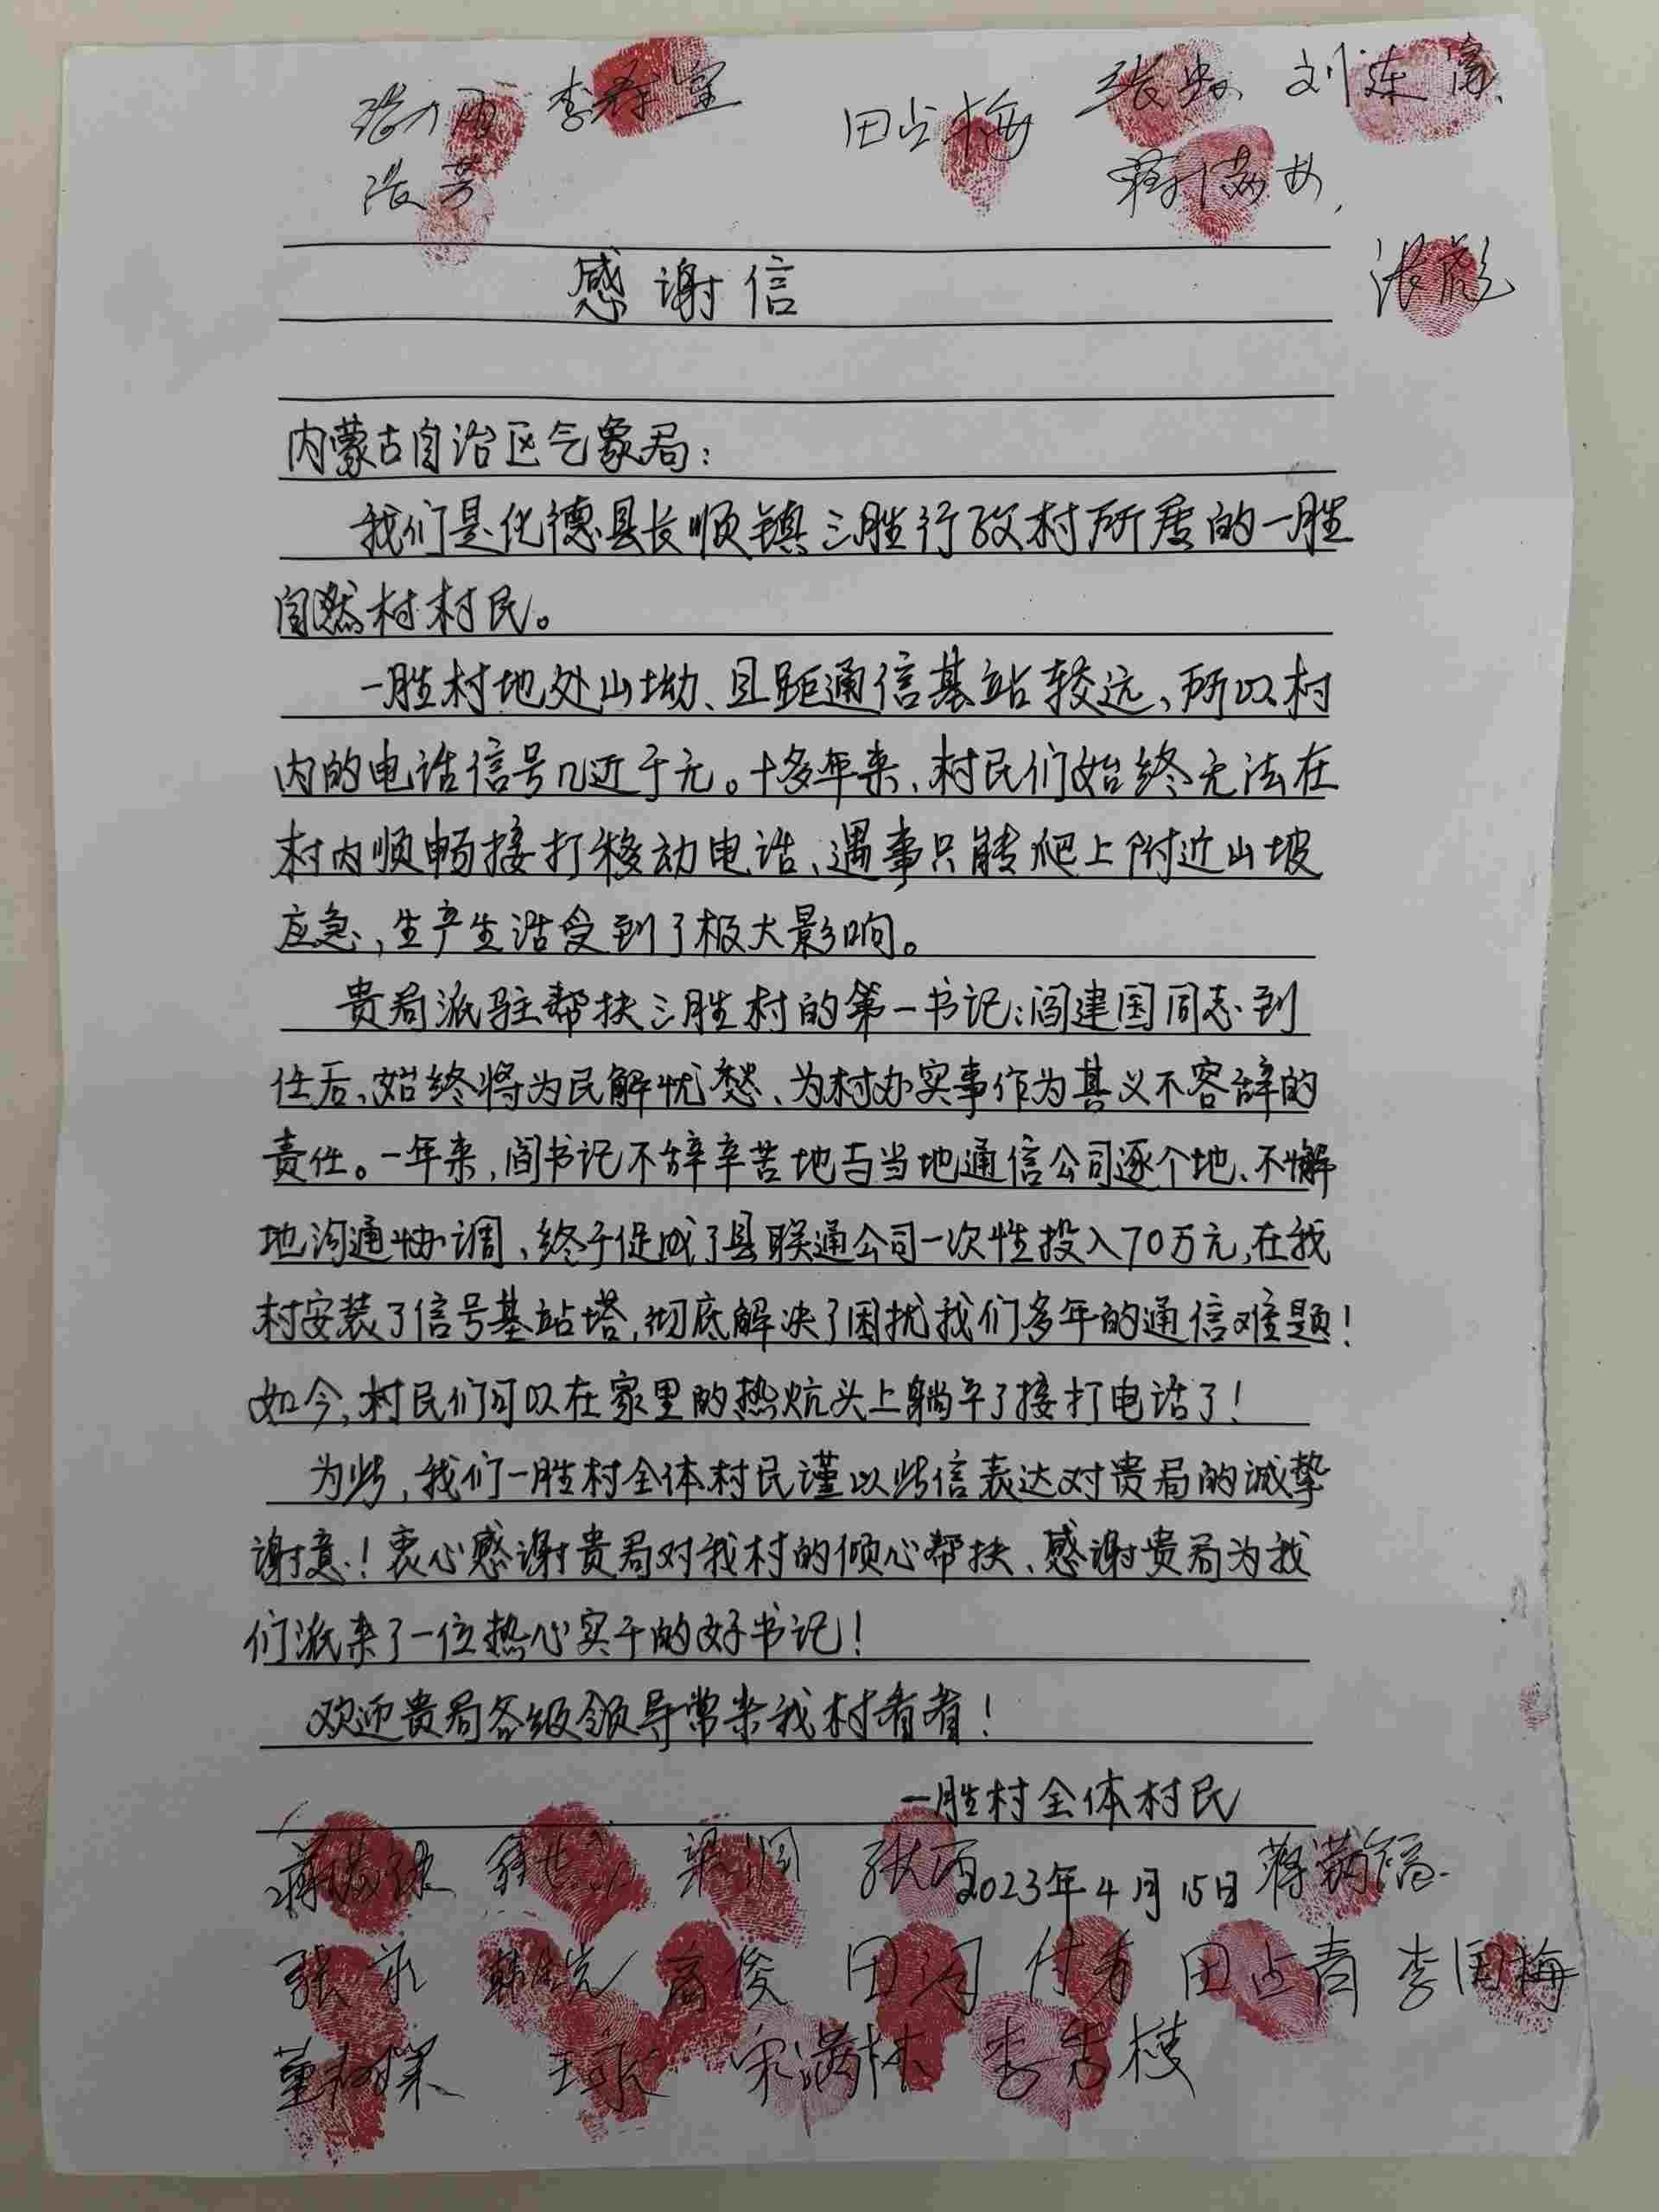 李寿
田占梅
刘东
张芳
蒋满女
张彪
感谢信
内蒙古自治区气象局：
我们是化德县长顺镇三胜行政村所属的一胜
自然村村民。
一胜村地处山坳、且距通信基站较远、所以村
内的电话信号几近于无。十多年来、村民们始终无法在
村内顺畅接打移动电话、遇事只能爬上附近山坡
应急，生产生活受到了极大影响。
贵局派驻帮扶三胜村的第一书记：阎建国同志到
任后、始终将为民解忧愁、为村办实事作为其义不容辞的
责任。一年来，阎书记不辞辛苦地与当地通信公司逐个地、不懈
地沟通协调、终于促成了县联通公司一次性投入70万元，在我
村安装了信号基站塔，彻底解决了困扰我们多年的通信难题！
如今，村民们可以在家里的热炕头上躺平了接打电话了！
为此，我们一胜村全体村民谨以此信表达对贵局的诚挚
谢意！衷心感谢贵局对我村的倾心帮扶、感谢贵局为我
们派来了一位热心实干的好书记！
欢迎贵局各级领导常来我村看看！
一胜村全体村民
梁润
2023年4月15日
蒋满
高俊
付秀
田占青
李国梅
宋满林
李秀枝